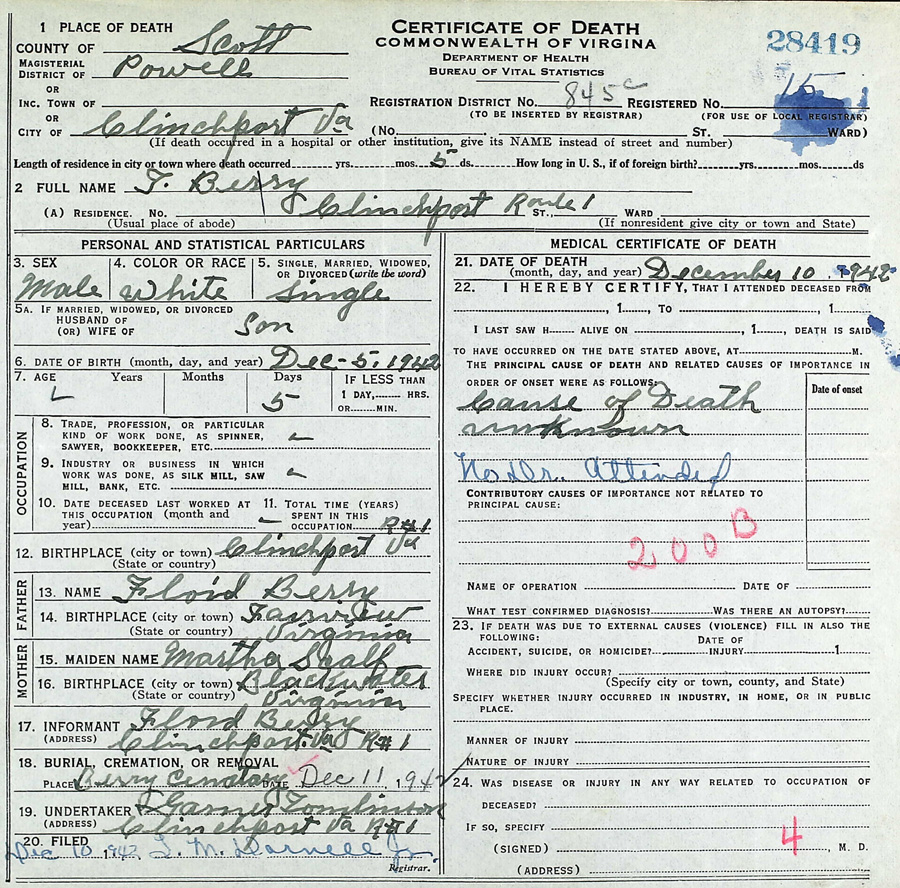 1 PLACE OF DEATH
COUNTY OF Scott
MAGISTERIAL DISTRICT OF Powell
OR
INC. TOWN OF
OR
CITY OF Clinchport Va
CERTIFICATE OF DEATH
COMMONWEALTH OF VIRGINIA
DEPARTMENT OF HEALTH
BUREAU OF VITAL STATISTICS
28419
REGISTRATION DISTRICT NO. 845c REGISTERED NO. 15
(TO BE INSERTED BY REGISTRAR) (FOR USE OF LOCAL REGISTRAR)
(NO. ST. WARD)
(If death occurred in a hospital or other institution, give its NAME instead of street and number)
Length of residence in city or town where death occurred yrs. mos. 5 ds. How long in U. S., if of foreign birth? yrs. mos. ds
2 FULL NAME T. Berry
(A) RESIDENCE. No. Clinchport Route 1 ST., WARD
(Usual place of abode) (If nonresident give city or town and State)
PERSONAL AND STATISTICAL PARTICULARS
3. SEX Male
4. COLOR OR RACE White
5. SINGLE, MARRIED, WIDOWED, OR DIVORCED (write the word) Single
5A. IF MARRIED, WIDOWED, OR DIVORCED
HUSBAND OF
(OR) WIFE OF Son
6. DATE OF BIRTH (month, day, and year) Dec-5. 1942
7. AGE Years Months Days IF LESS THAN
5 1 DAY, HRS.
OR MIN.
OCCUPATION
8. TRADE, PROFESSION, OR PARTICULAR
KIND OF WORK DONE, AS SPINNER,
SAWYER, BOOKKEEPER, ETC.
9. INDUSTRY OR BUSINESS IN WHICH
WORK WAS DONE, AS SILK MILL, SAW
MILL, BANK, ETC.
10. DATE DECEASED LAST WORKED AT
THIS OCCUPATION (month and
year)
11. TOTAL TIME (YEARS)
SPENT IN THIS
OCCUPATION R#1
12. BIRTHPLACE (city or town) Clinchport Va
(State or country)
FATHER
13. NAME Floid Berry
14. BIRTHPLACE (city or town) Fairview
(State or country) Virginia
MOTHER
15. MAIDEN NAME Martha Shalf
16. BIRTHPLACE (city or town) Blackwater
(State or country) Virginia
17. INFORMANT Floid Berry
(ADDRESS) Clinchport. Va R#1
18. BURIAL, CREMATION, OR REMOVAL
PLACE Berry Cemetary DATE Dec 11, 1942
19. UNDERTAKER Garnet Tomlinson
(ADDRESS) Clinchport Va R#1
20. FILED
Dec 10, 1942 L. M. Darnell Jr.
Registrar.
MEDICAL CERTIFICATE OF DEATH
21. DATE OF DEATH
(month, day, and year) December 10, 1942
22. I HEREBY CERTIFY, THAT I ATTENDED DECEASED FROM
, 1 , TO , 1
I LAST SAW H ALIVE ON , 1 , DEATH IS SAID
TO HAVE OCCURRED ON THE DATE STATED ABOVE, AT M.
THE PRINCIPAL CAUSE OF DEATH AND RELATED CAUSES OF IMPORTANCE IN
ORDER OF ONSET WERE AS FOLLOWS:
Date of onset
Cause of Death
unknown
No Dr. Attended
CONTRIBUTORY CAUSES OF IMPORTANCE NOT RELATED TO
PRINCIPAL CAUSE:
200B
NAME OF OPERATION DATE OF
WHAT TEST CONFIRMED DIAGNOSIS? WAS THERE AN AUTOPSY?
23. IF DEATH WAS DUE TO EXTERNAL CAUSES (VIOLENCE) FILL IN ALSO THE
FOLLOWING: DATE OF
ACCIDENT, SUICIDE, OR HOMICIDE? INJURY 1
WHERE DID INJURY OCCUR?
(Specify city or town, county, and State)
SPECIFY WHETHER INJURY OCCURRED IN INDUSTRY, IN HOME, OR IN PUBLIC
PLACE.
MANNER OF INJURY
NATURE OF INJURY
24. WAS DISEASE OR INJURY IN ANY WAY RELATED TO OCCUPATION OF
DECEASED?
IF SO, SPECIFY
4
(SIGNED) , M. D.
(ADDRESS)